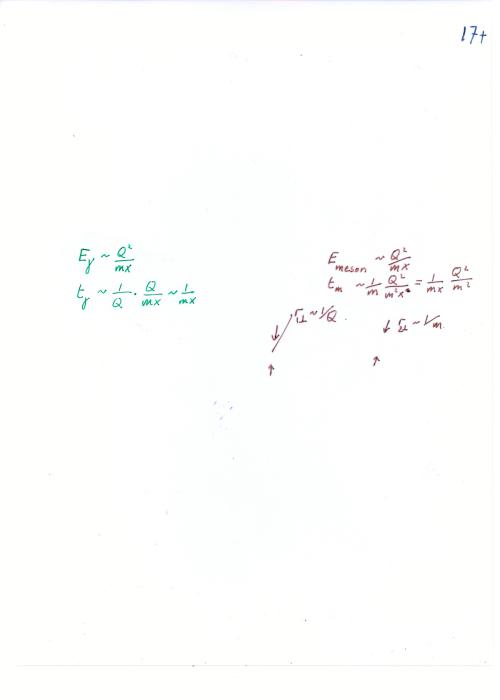 17+
E_γ ~ Q²/mx
t_γ ~ 1/Q · Q/mx ~ 1/mx
E_meson ~ Q²/mx
t_m ~ 1/m Q²/m²x = 1/mx Q²/m²
r_⊥ ~ 1/Q.
r_⊥ ~ 1/m.